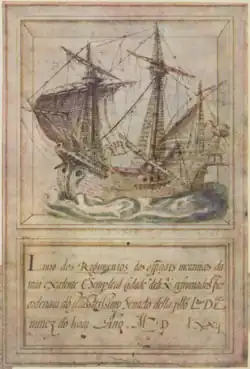 Liuro dos Regimentos dos mecanicos da
mui Excelente E Sempre leal cidade de refromados per
ordenança do Illustrissimo Senado della pello L.do D.te
nunez do liam Ano. M. D